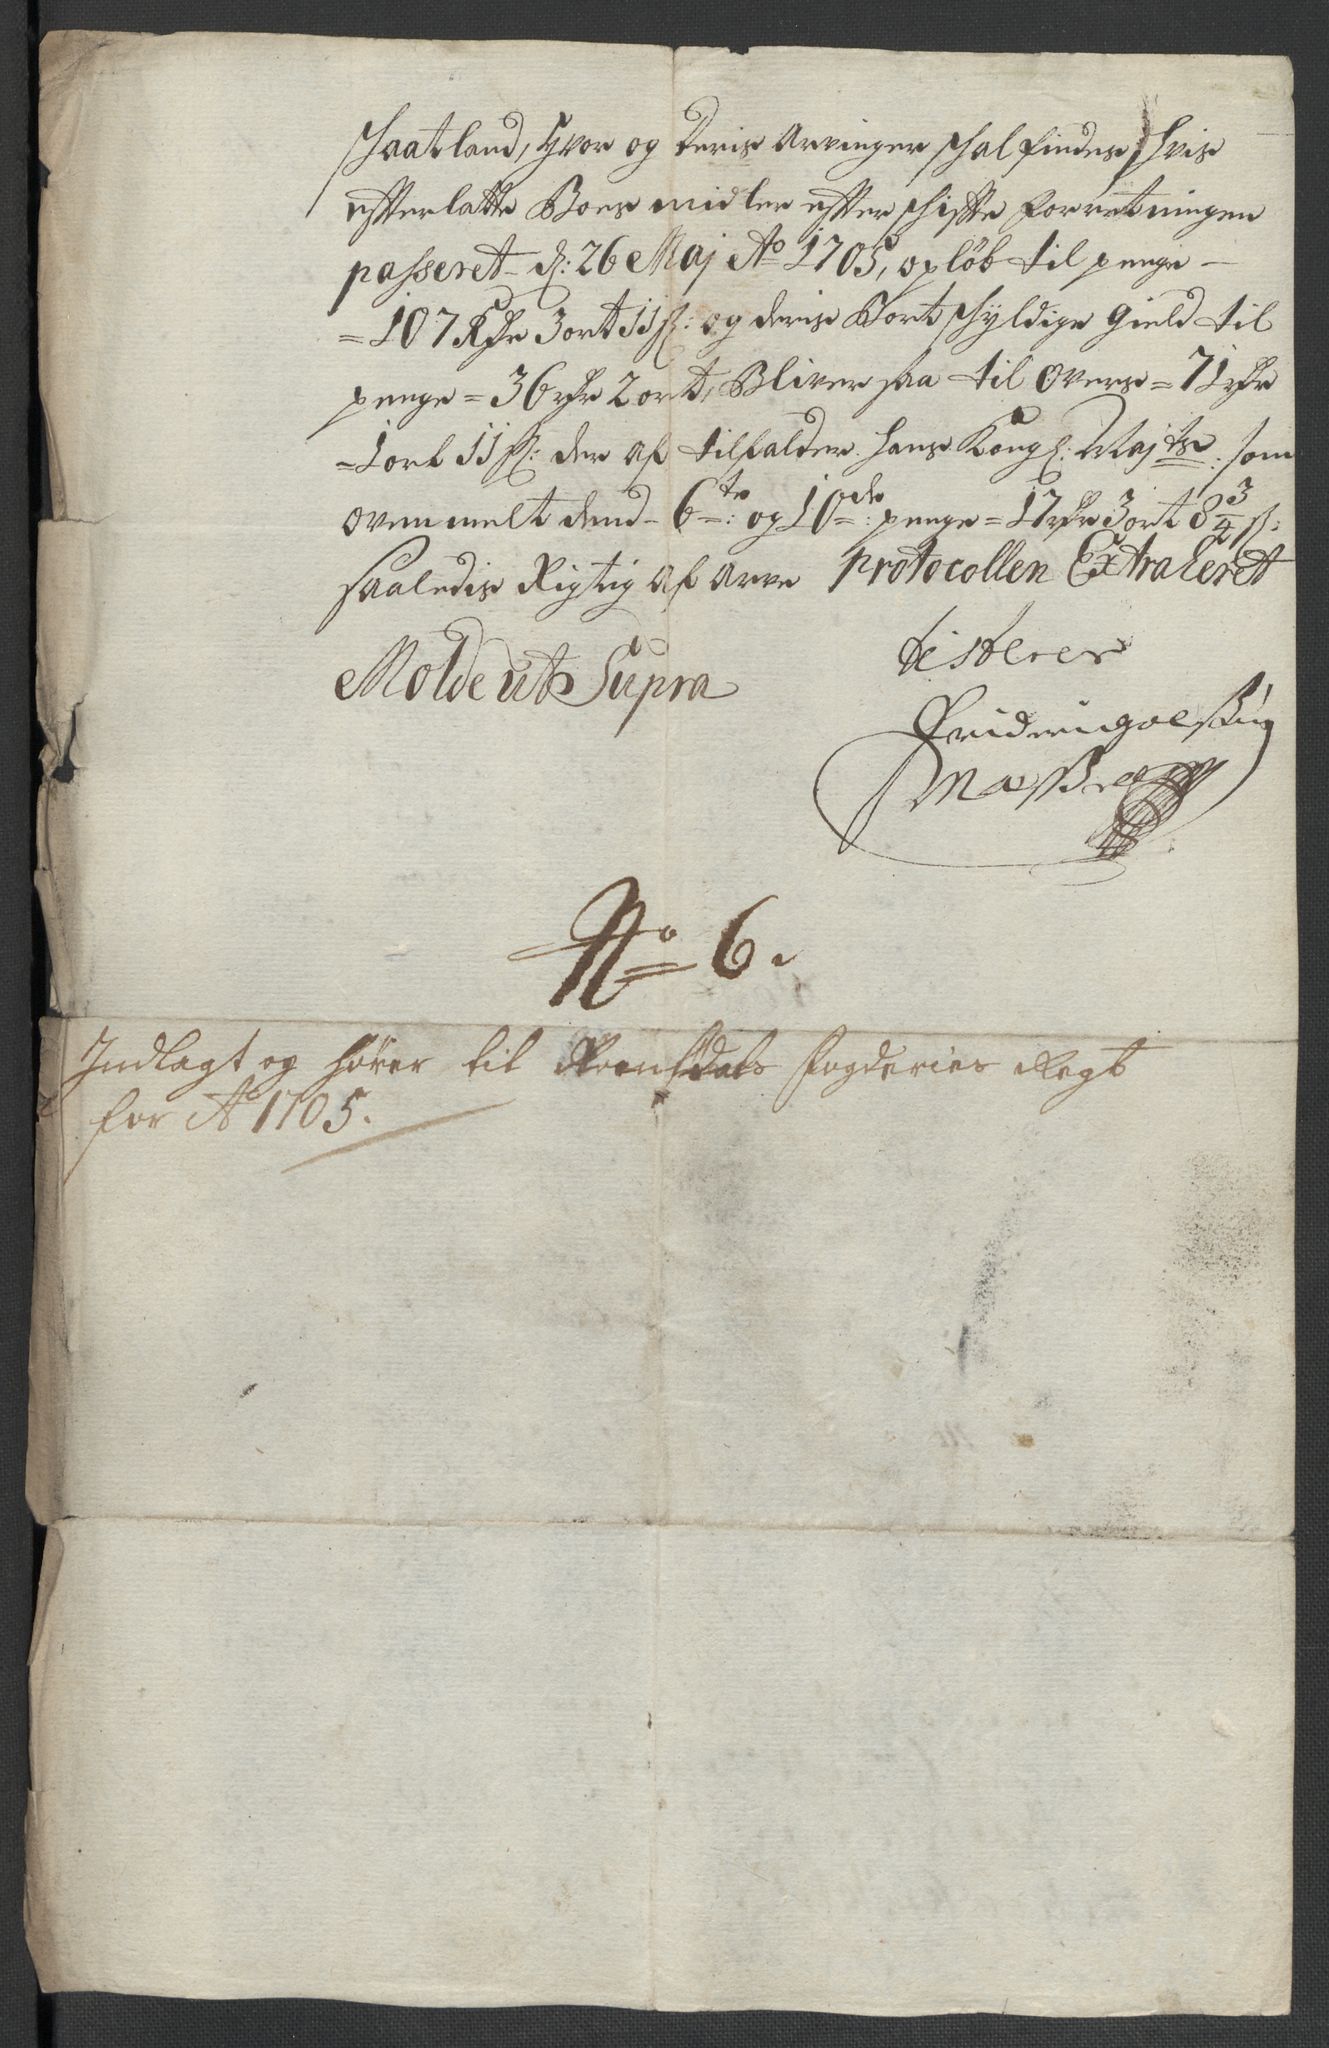 schaatland, hvor og deris Arvinger schal findes, hvis
effterlatte Boes midler effter schiffte forretningen
passeret d: 26 Maj Ao 1705, opløb til penge
= 107 Rdr 3 ort 11 ß: og deris bort schyldige gield til
penge = 36 rdr 2 ort, Bliver saa til overs = 71 rdr
= 1 ort 11 ß: der af tilfalder hans Kongl: Majts: som
ovenmelt dend 6te: og 10de: penge = 17 rdr 3 ort 8 3/4 ß:
saaledis Rigtig af Arve Protocollen Extraheret
testerer
Molde ut Supra
No 6.
Indlagt og hører til Romsdals fogderies Regt
for Ao 1705.